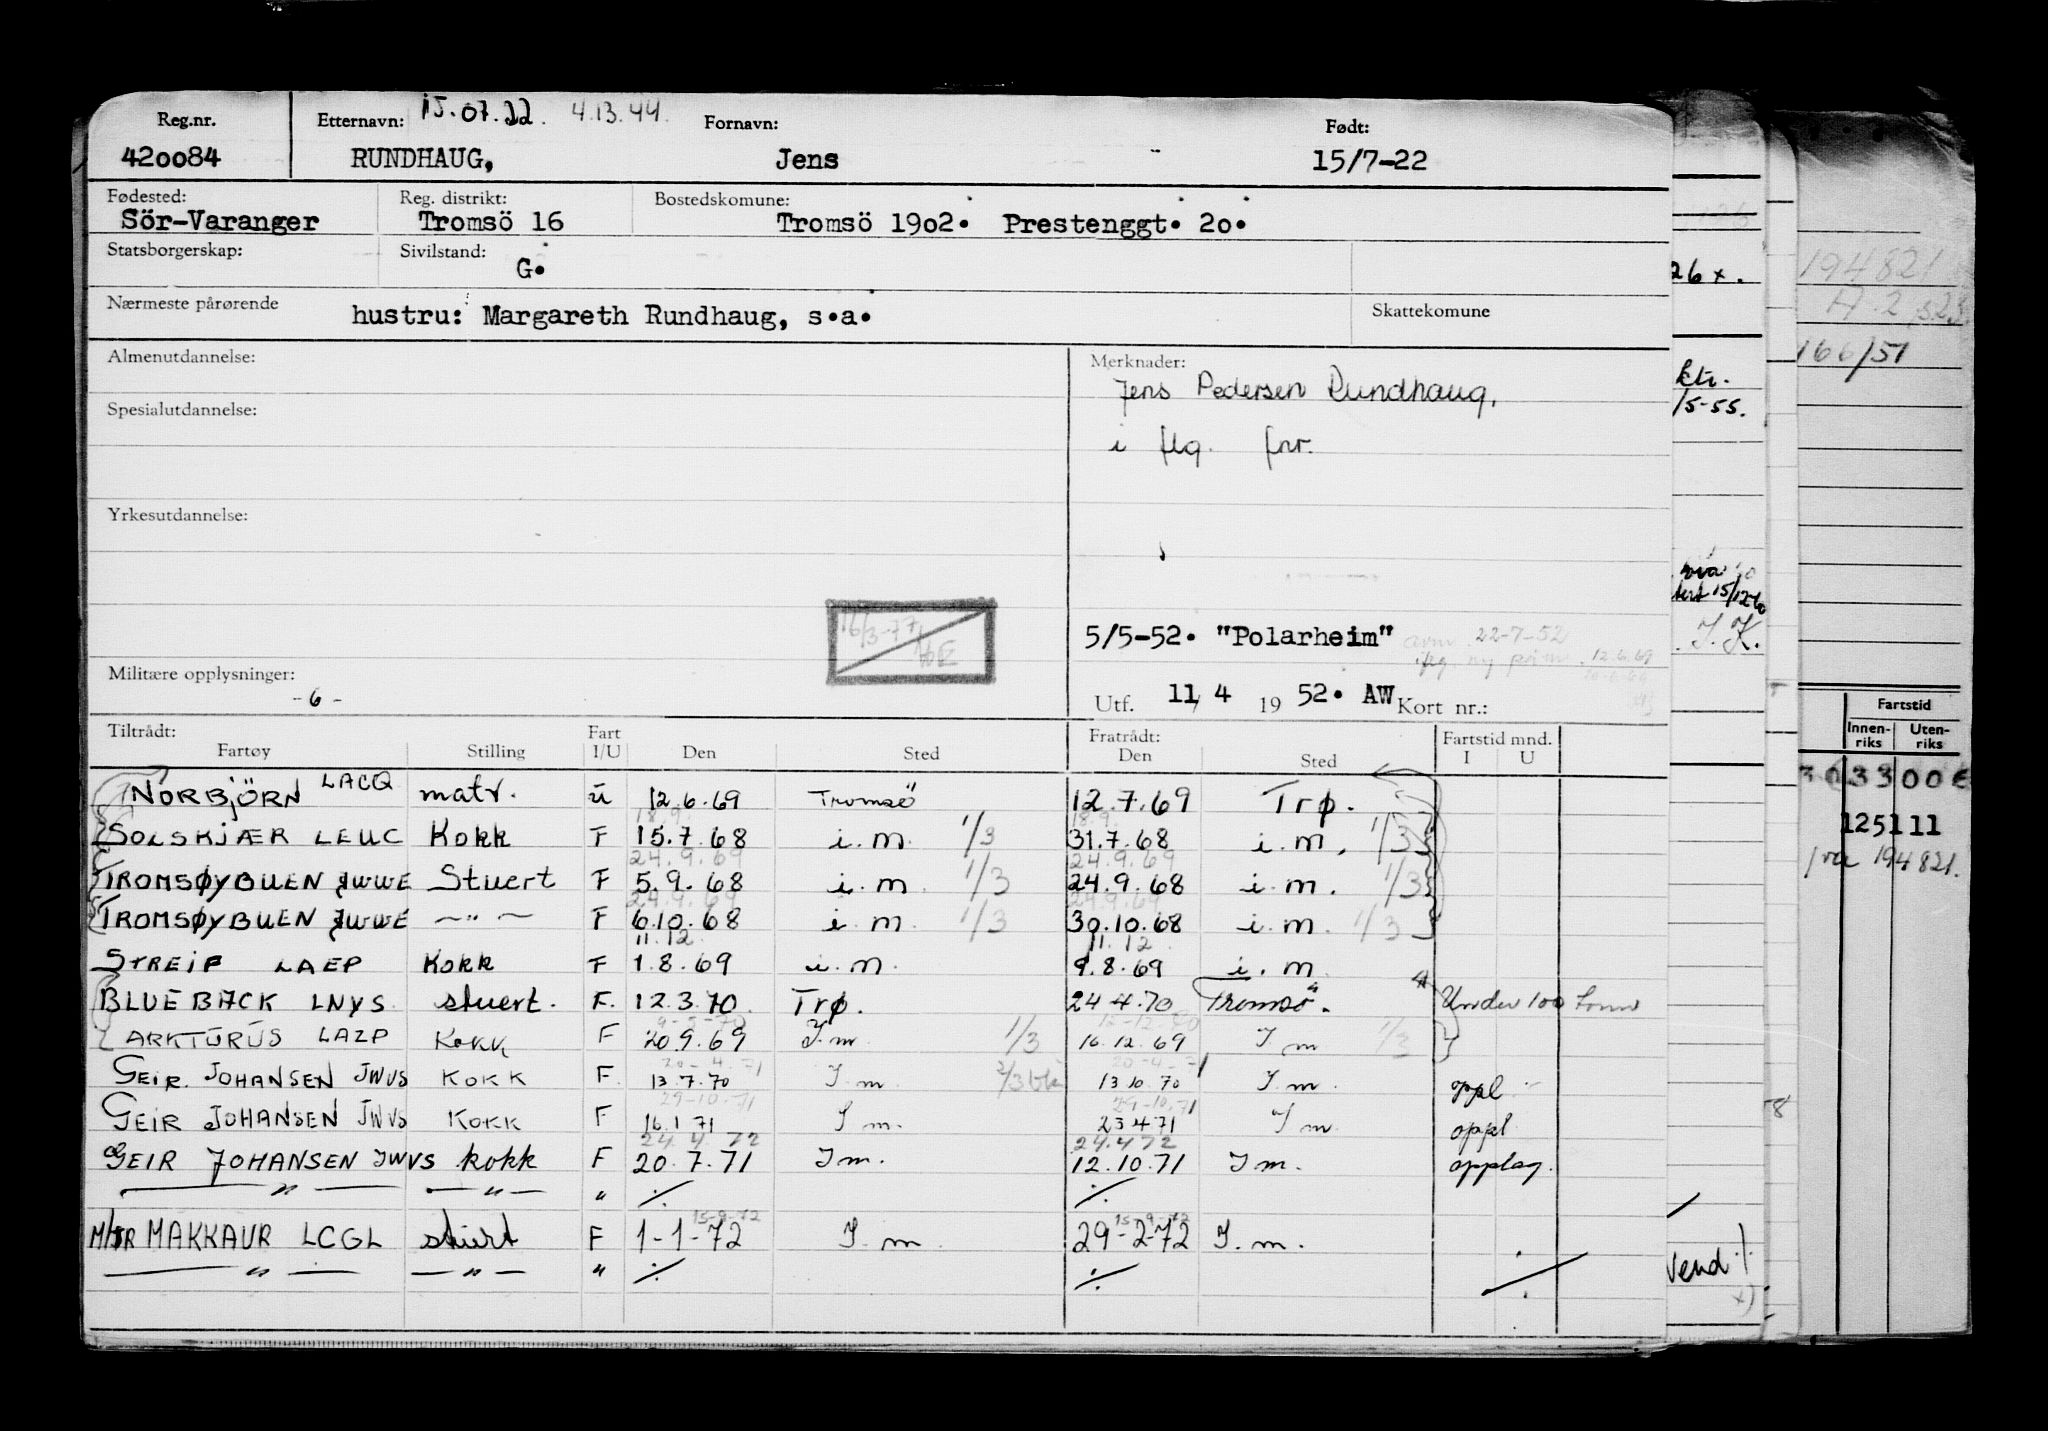 Reg.nr. Etternavn: 15.07.22. 4.13.44. Fornavn: Født:
420084 RUNDHAUG, Jens 15/7-22
Fødested: Reg. distrikt: Bostedskomune:
Sör-Varanger Tromsö 16 Tromsö 1902. Prestenggt. 20.
Statsborgerskap: Sivilstand: G.
Nærmeste pårørende hustru: Margareth Rundhaug, s.a. Skattekomune
Almenutdannelse: Merknader:
Jens Pedersen Rundhaug,
Spesialutdannelse:
i flg. fnr.
Yrkesutdannelse:
16/3-77
5/5-52. "Polarheim" 22-7-52
12.6.69
Militære opplysninger: -6-
Utf. 11/4 1952. AW Kort nr.:
Tiltrådt: Fart Fratrådt: Fartstid mnd.
Fartøy Stilling I/U Den Sted Den Sted I U
NORBJÖRN LACQ matr. U 12.6.69 Tromsö 12.7.69 Trø.
18.9. 18.9.
SOLSKJÆR LEUC Kokk F 15.7.68 i.m. 1/3 31.7.68 i.m. 1/3
24.9.69 24.9.69
TROMSØYBUEN JWWE Stuert F 5.9.68 i.m. 1/3 24.9.68 i.m. 1/3
24.9.69 24.9.69
TROMSØYBUEN JWWE —"— F 6.10.68 i.m. 1/3 30.10.68 i.m. 1/3
11.12. 11.12
STREIF LAEP Kokk F 1.8.69 i.m. 9.8.69 i.m.
BLUEBACK LNYS stuert. F. 12.3.70 Trø. 24.4.70 Tromsö. Under 100 tonn
ARKTURUS LAZP Kokk F 20.9.69 I.m. 1/3 16.12.69 I m 1/3
20-4-71 20-4-71
GEIR JOHANSEN JWVS KOKK F. 13.7.70 I m. 13 10.70 I m. oppl.
29-10-71 29-10.71
GEIR JOHANSEN JWVS KOKK F 16.1 71 I m. 23 4 71 I m oppl
24.4.72 24.4 72
GEIR JOHANSEN JWVS kokk F 20.7.71 I m. 12.10.71 I m. opplag.
—"— —"— " ./. ./.
15-9-72 15-9-72
M/TR MAKKAUR LCGL stuert F 1-1-72 I.m. 29-2-72 I.m.
—"— —"— " ./. ./. ./.
26 x.
/5-55.
15/12-60
J.K.
Vend ./.
x)
194821
166/51
Fartstid
Innen-riks Uten-riks
125111
194821.